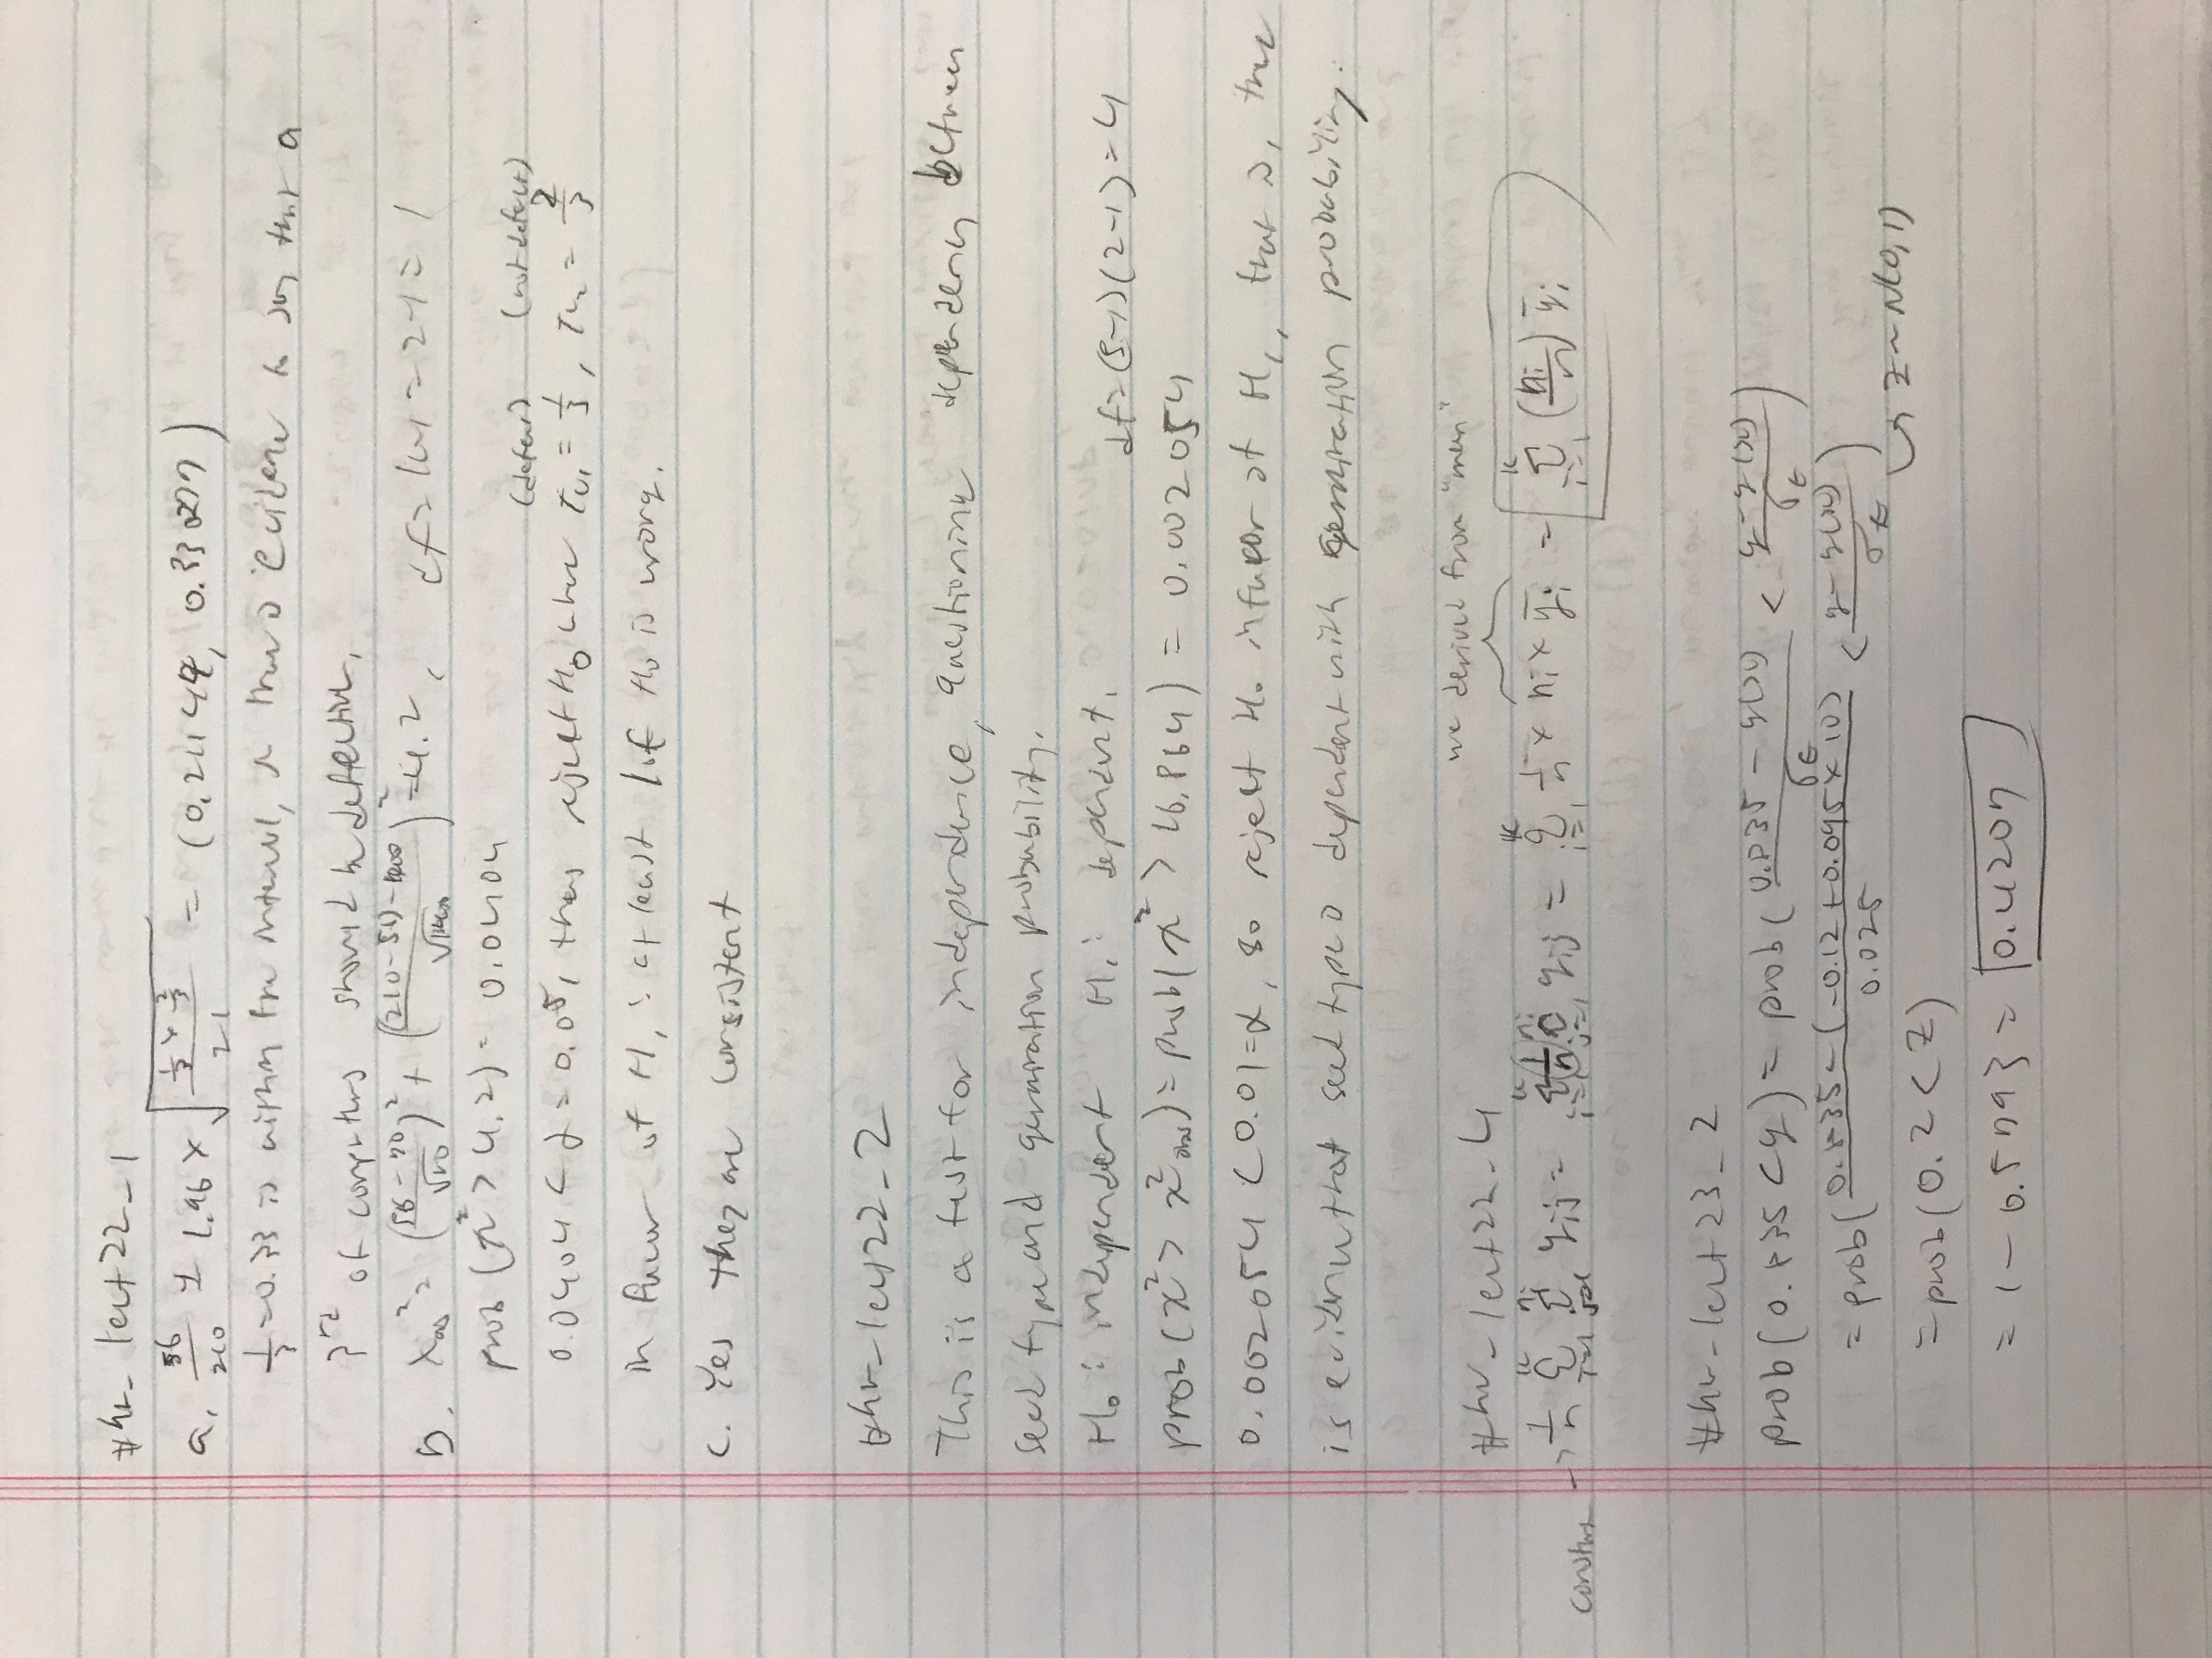 #hw_lect22_1
a. 56/200 ± 1.96 × √(1/3 × 2/3 / 21 = (0.2144, 0.33807)
1/3 = 0.33 is within the interval, so there is evidence to say that a
3rd of computers should be defective.
b. χ²obs = ((56-70)/√70)² + ((210-56)-140)/√140)² = 4.2, df = 1 = 2-1 = 1
prob (χ² > 4.2) = 0.0404
(defect) (not defect)
0.0404 < α = 0.05, thus reject H₀ where π₁ = 1/3, π₂ = 2/3
in favor of H₁: at least 1 of H₀ is wrong.
c. Yes they are consistent
#hw_lect22_2
This is a test for independence, questioning dependency between
seed type and germination probability.
H₀: independent H₁: dependent. df = (5-1)(2-1) = 4
prob(χ² > χ²obs) = prob(χ² > 16.864) = 0.002054
0.002054 < 0.01 = α, so reject H₀ in favor of H₁, that is, there
is evidence that seed type is dependent with germination probability.
#hw_lect22_4 we derived from "mean"
constant → 1/n Σ Σ yij = Σ 1/n Σ yij = Σ 1/n × ni × ȳi = Σ (ni/n) ȳi
#hw_lect23_2
prob(0.835 < y) = prob( (0.835 - y(x)) / σε < (y - y(x)) / σε )
= prob( (0.835 - (-0.12 + 0.095 × 10)) / 0.025 < (y - y(x)) / σε )
= prob(0.2 < Z) ↳ z ~ N(0,1)
= 1 - 0.5793 = 0.4207